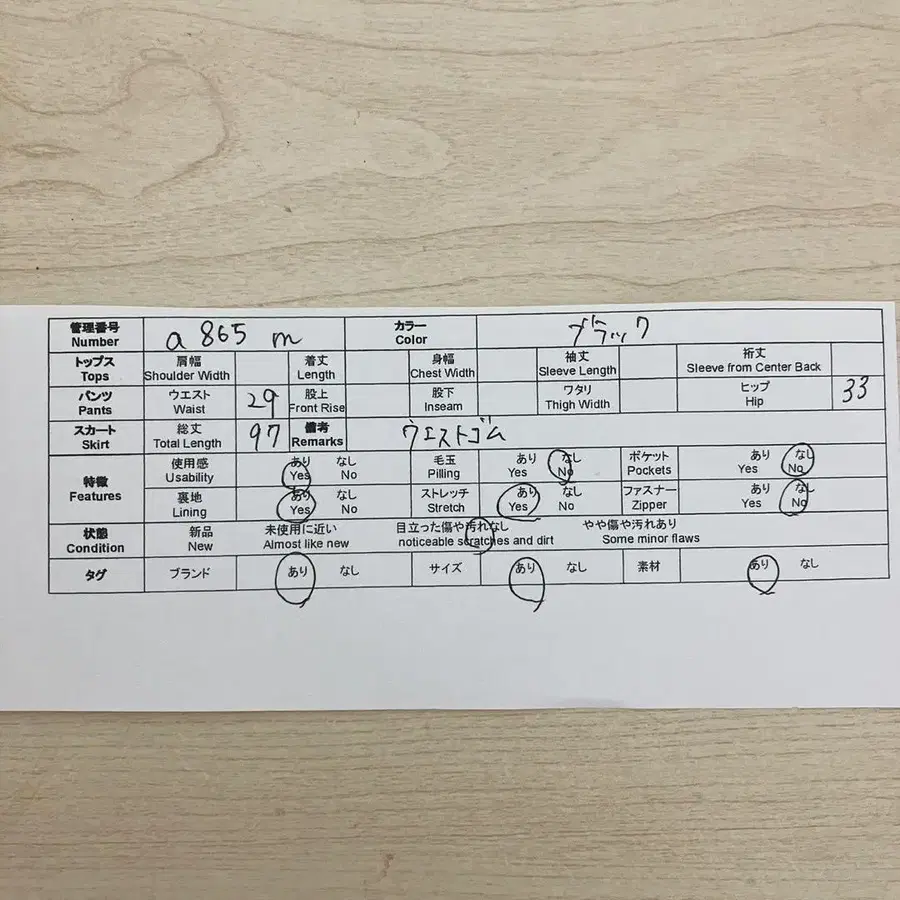 管理番号 a 865 m カラー ブラック
Number Color
トップス 肩幅 着丈 身幅 袖丈 裄丈
Tops Shoulder Width Length Chest Width Sleeve Length Sleeve from Center Back
パンツ ウエスト 29 股上 股下 ワタリ ヒップ 33
Pants Waist Front Rise Inseam Thigh Width Hip
スカート 総丈 97 備考 ウエストゴム
Skirt Total Length Remarks
特徴 使用感 あり なし 毛玉 あり なし ポケット あり なし
Features Usability Yes No Pilling Yes No Pockets Yes No
裏地 あり なし ストレッチ あり なし ファスナー あり なし
Lining Yes No Stretch Yes No Zipper Yes No
状態 新品 未使用に近い 目立った傷や汚れなし やや傷や汚れあり
Condition New Almost like new noticeable scratches and dirt Some minor flaws
タグ ブランド あり なし サイズ あり なし 素材 あり なし